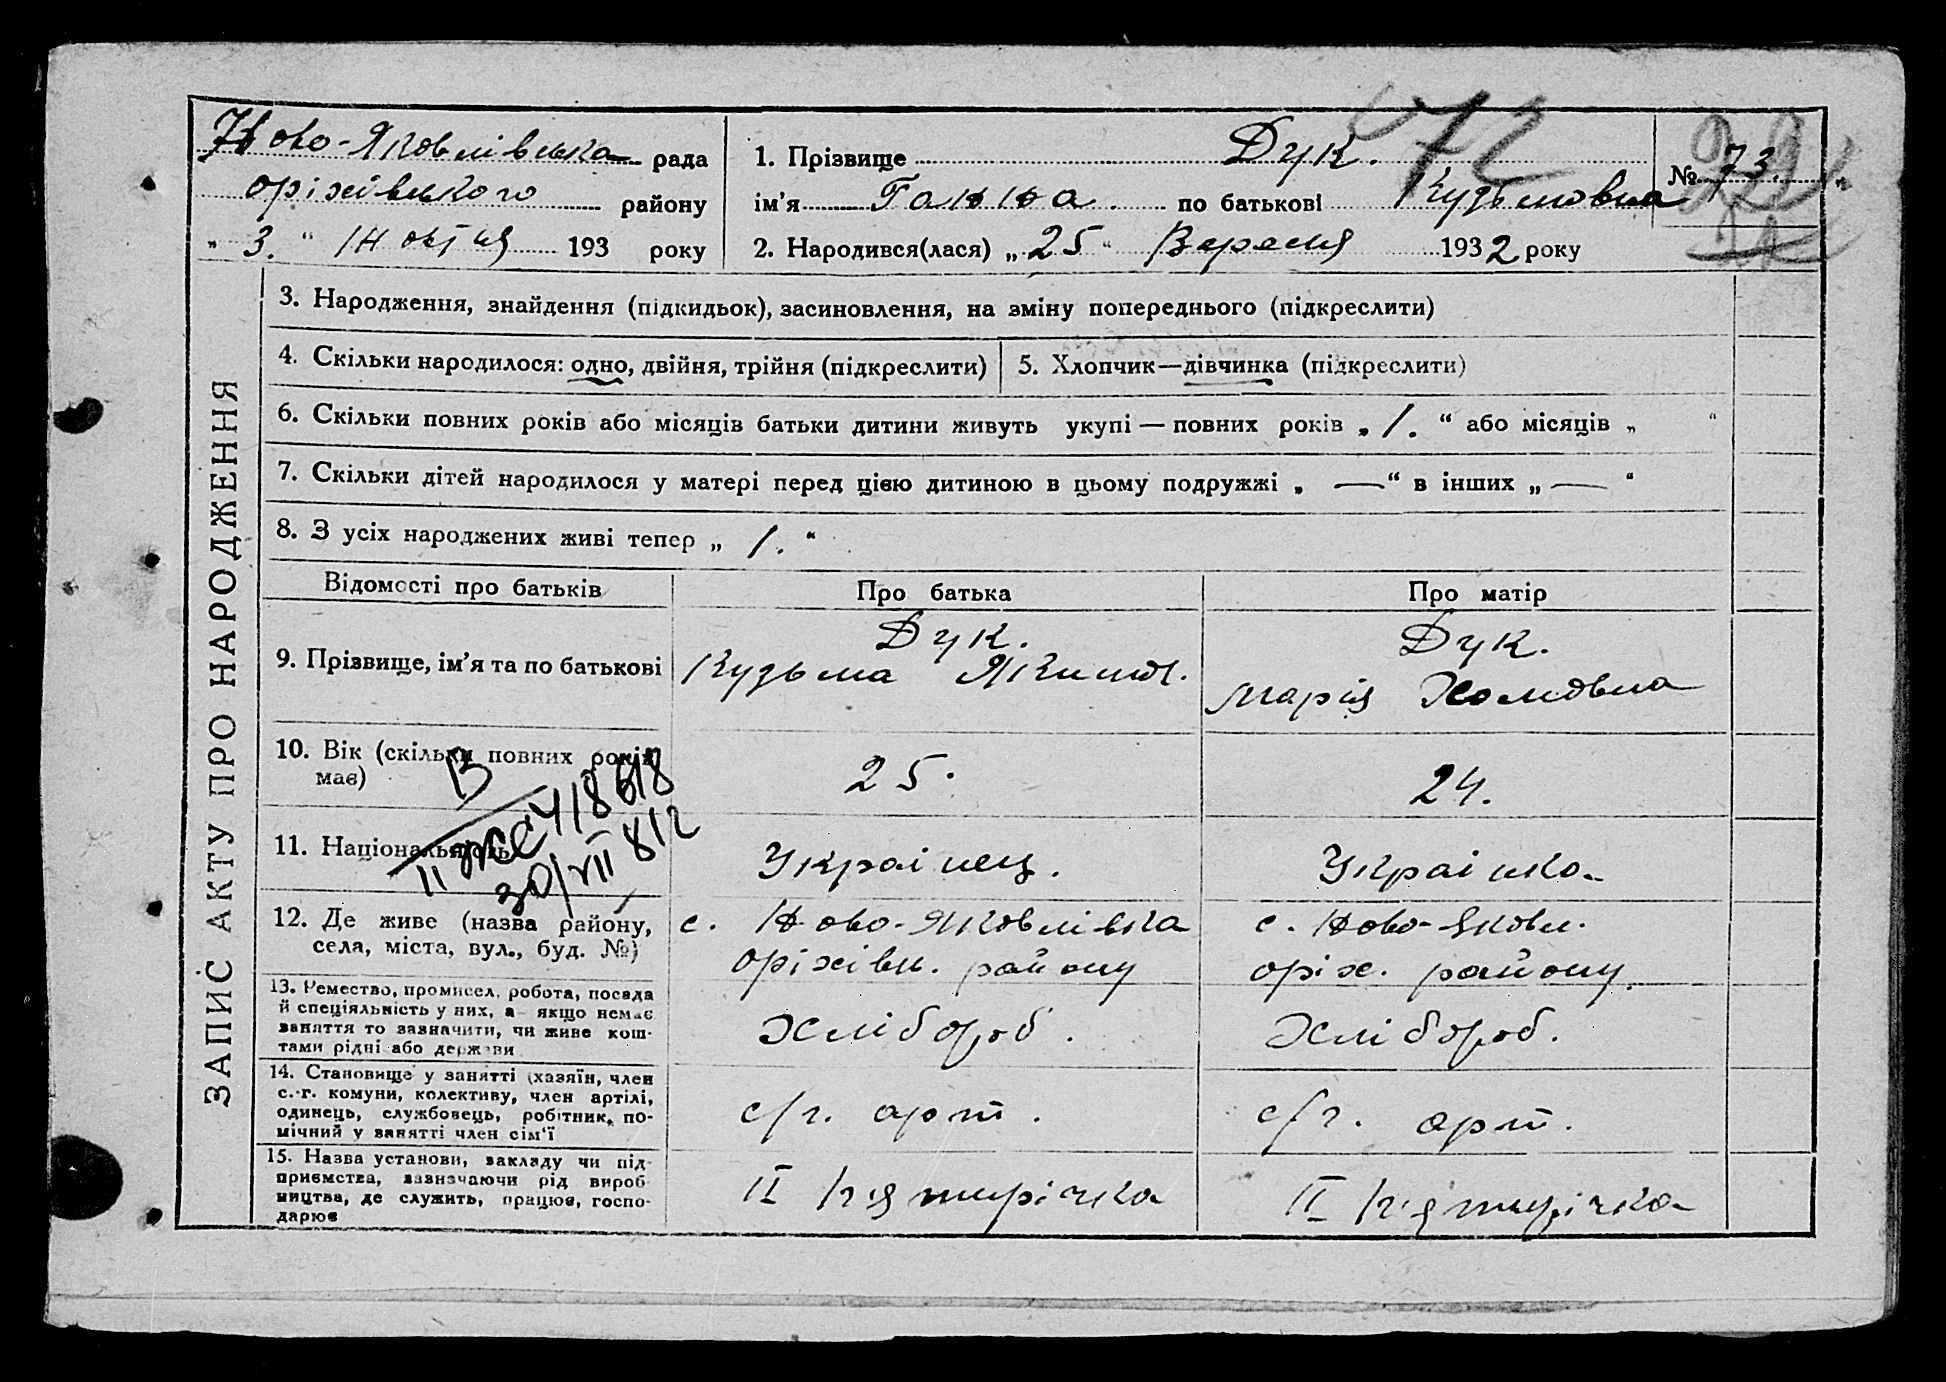 Ново-Яковлівська рада
Оріхівського району
„ 3. “ Жовтня 193 року
1. Прізвище Дук.
ім’я Ганна по батькові Кузьмовна
2. Народився(лася) „ 25 “ Вересня 1932 року
72
№ 73.
ЗАПИС АКТУ ПРО НАРОДЖЕННЯ
3. Народження, знайдення (підкидьок), засиновлення, на зміну попереднього (підкреслити)
4. Скільки народилося: одно, двійня, трійня (підкреслити)
5. Хлопчик—дівчинка (підкреслити)
6. Скільки повних років або місяців батьки дитини живуть укупі — повних років „ 1. “ або місяців „ “
7. Скільки дітей народилося у матері перед цією дитиною в цьому подружжі „ — “ в інших „ — “
8. З усіх народжених живі тепер „ 1. “
Відомості про батьків
Про батька
Про матір
9. Прізвище, ім’я та по батькові
Дук.
Кузьма Яким.
Дук.
Марія Хомовна
10. Вік (скільки повних років
має)
25.
24.
11. Національність
Українец.
Українка.
418618
30/VII 812
12. Де живе (назва району,
села, міста, вул., буд. №)
с. Ново-Яковлівка
Оріхівськ. району
с. Ново-Яковл.
Оріх. району
13. Ремество, промисел, робота, посада
й спеціяльність у них, а якщо немає
заняття то зазначити, чи живе кош-
тами рідні або держави
Хлібороб.
Хлібороб.
14. Становище у занятті (хазяїн, член
с.-г. комуни, колективу, член артілі,
одинець, службовець, робітник, по-
мічний у занятті член сім’ї
с/г. арт.
с/г. арт.
15. Назва установи, закладу чи під-
приємства, зазначаючи рід вироб-
ництва, де служить, працює, госпо-
дарює
II п'ятирічка
II п'ятирічка